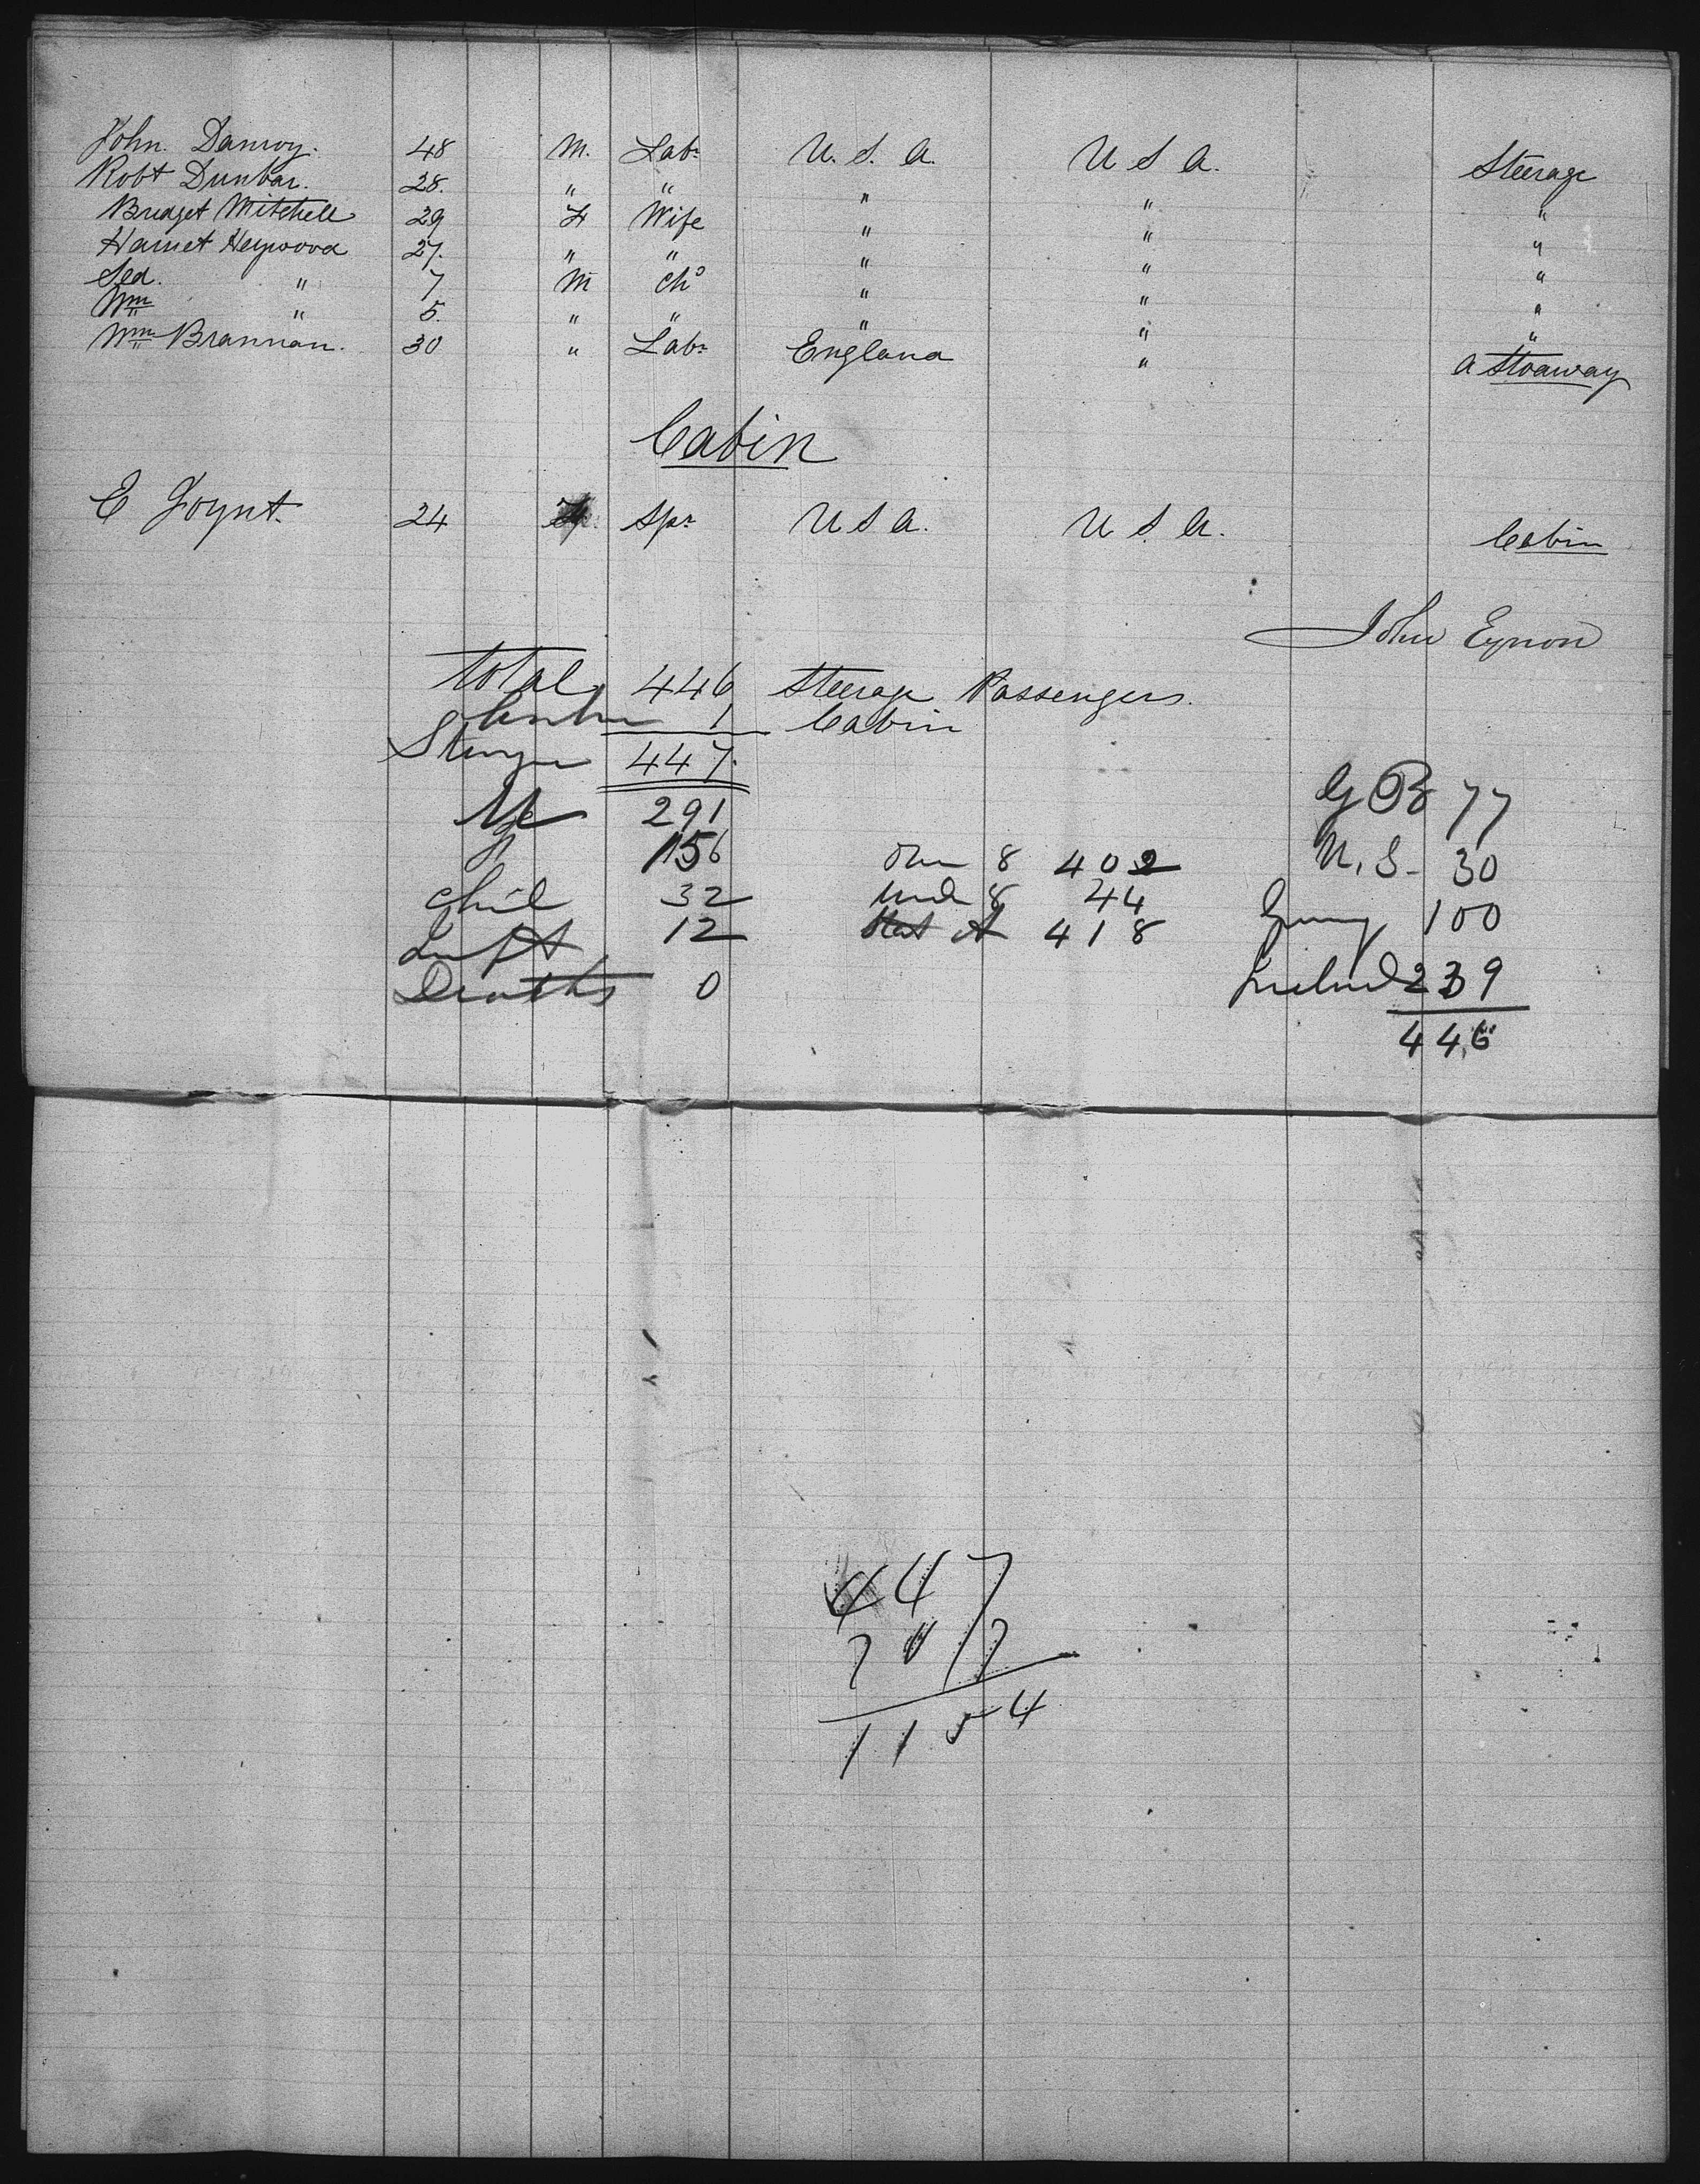 John. Damoy. 48 M. Labr U. S. A. U S A. Steerage
Robt Dunbar. 28. " " " " "
Bridget Mitchell 29 F Wife " " "
Harriet Heywood 27. " " " " "
Sed. " 7 M chd " " "
Wm " 5. " " " " "
Wm Brannan. 30 " Labr England " a Stoaway
Cabin
E Joynt. 24 F. Spr U S A. U S A. Cabin
John Eynon
Total 446 Steerage Passengers.
1 Cabin
447.
M 291 G B 77
F 156 Over 8 402 U. S- 30
Chil 32 Und 8 44 Germy 100
Inft 12 Stat A 418 Ireland 239
Deaths 0 446
447
707
1154